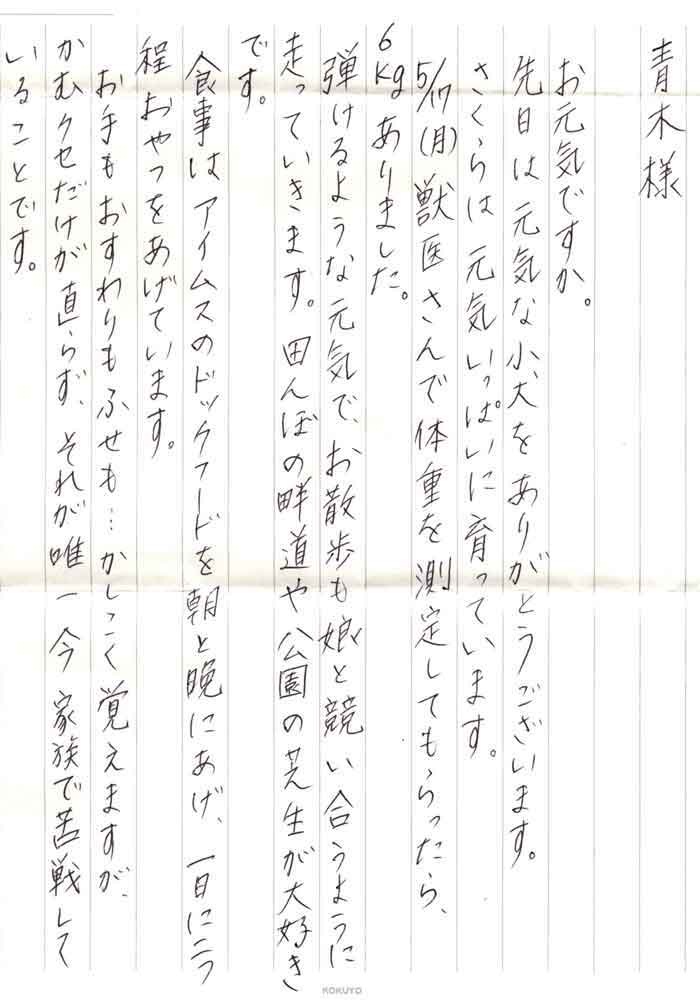 青木様
お元気ですか。
先日は元気な小犬をありがとうございます。
さくらは元気いっぱいに育っています。
5/17(月)獣医さんで体重を測定してもらったら、
6kgありました。
弾けるような元気で、お散歩も娘と競い合うように
走っていきます。田んぼの畔道や公園の芝生が大好き
です。
食事はアイムスのドックフードを朝と晩にあげ、一日に二つ
程おやつをあげています。
お手もおすわりもふせも…かしこく覚えますが、
かむクセだけが直らず、それが唯一今家族で苦戦して
いることです。
KOKUYO